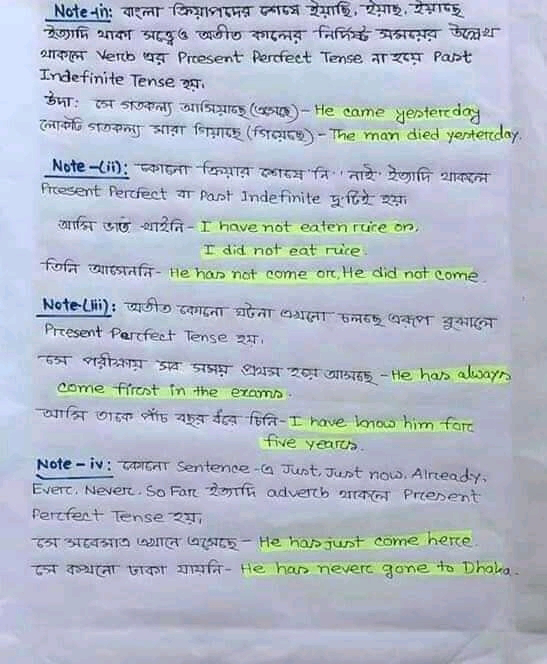 Note-(i): বাংলা ক্রিয়াপদের শেষে ইয়াছি, ইয়াছ, ইয়াছে
ইত্যাদি থাকা সত্ত্বেও অতীত কালের নির্দিষ্ট সময়ের উল্লেখ
থাকলে Verb এর Present Perfect Tense না হয়ে Past
Indefinite Tense হয়।
উদা: সে গতকল্য আসিয়াছে (এসেছে) - He came yesterday
লোকটি গতকল্য মারা গিয়াছে (গিয়েছে) - The man died yesterday.
Note-(ii): কোনো ক্রিয়ার শেষে 'নি' 'নাই' ইত্যাদি থাকলে
Present Perfect বা Past Indefinite দু'টিই হয়।
আমি ভাত খাইনি - I have not eaten rice or,
I did not eat rice.
তিনি আসেননি - He has not come or, He did not come.
Note-(iii): অতীত কোনো ঘটনা এখনো চলছে এরূপ বুঝালে
Present Perfect Tense হয়।
সে পরীক্ষায় সব সময় প্রথম হয়ে আসছে - He has always
come first in the exams.
আমি তাকে পাঁচ বছর ধরে চিনি - I have know him for
five years.
Note - iv: কোনো Sentence -এ Just, Just now, Already,
Ever, Never, So Far ইত্যাদি adverb থাকলে Present
Perfect Tense হয়।
সে সবেমাত্র এখানে এসেছে - He has just come here.
সে কখনো ঢাকা যায়নি - He has never gone to Dhaka.